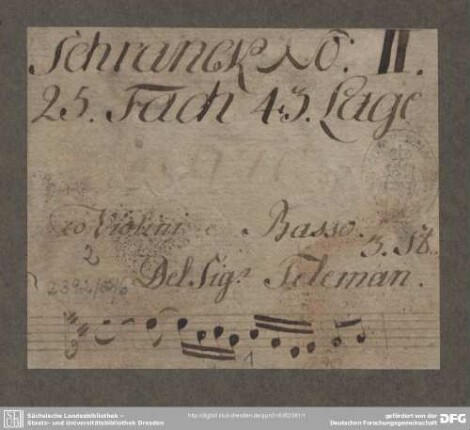 Schranck No: II.
25. Fach 43. Lage
Violini e Basso.
3. St.
2
2392/
Del Sig.r Teleman.
1
Sächsische Landesbibliothek –
Staats- und Universitätsbibliothek Dresden
gefördert von der
Deutschen Forschungsgemeinschaft
DFG